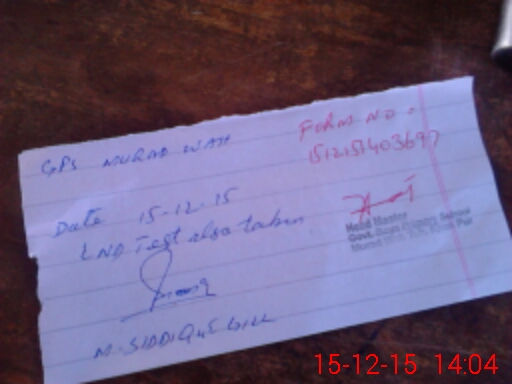 GPS MURAD WAH
FORM NO =
151215140369?
Date 15-12-15
LND Test also taken
Head Master
Govt. Boys Primary School
Murad
M. SIDDIQUE GILL
15-12-15 14:04